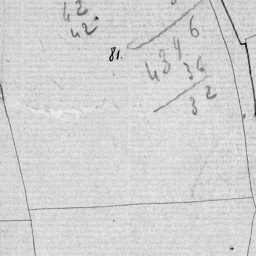 42
42
81.
6
434
36
32